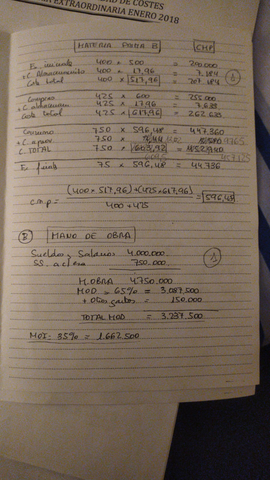 DAD DE COSTES
EXTRAORDINARIA ENERO 2018
MATERIA PRIMA B CMP
Ex. iniciales 400 x 500 = 200.000
+C. Almacenamiento 400 x 17,96 = 7.184
Coste total 400 x 517,96 = 207.184
Compras 425 x 600 = 255.000
+C. almacenam 425 x 17,96 = 7.633
Coste total 425 x 617,96 = 262.633
Consumo 750 x 596,48 = 447.360
+C. aprov 750 x
C. TOTAL 750 x
Ex. finales 75 x 596,48 = 44.736
C.M.P = (400 x 517,96) + (425 x 617,96) = 596,48
400 + 425
B) MANO DE OBRA
Sueldos y Salarios 4.000.000
SS. a c/ emp 750.000
M. OBRA 4.750.000
MOD = 65% = 3.087.500
+ Otros gastos = 150.000
TOTAL MOD = 3.237.500
MOI: 35% = 1.662.500